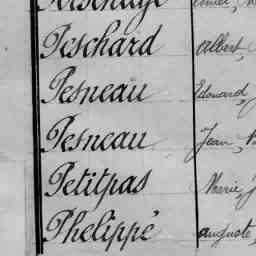 Peschard Albert,
Pesneau Edouard,
Pesneau Jean,
Petitpas Marie,
Phelippé Auguste,